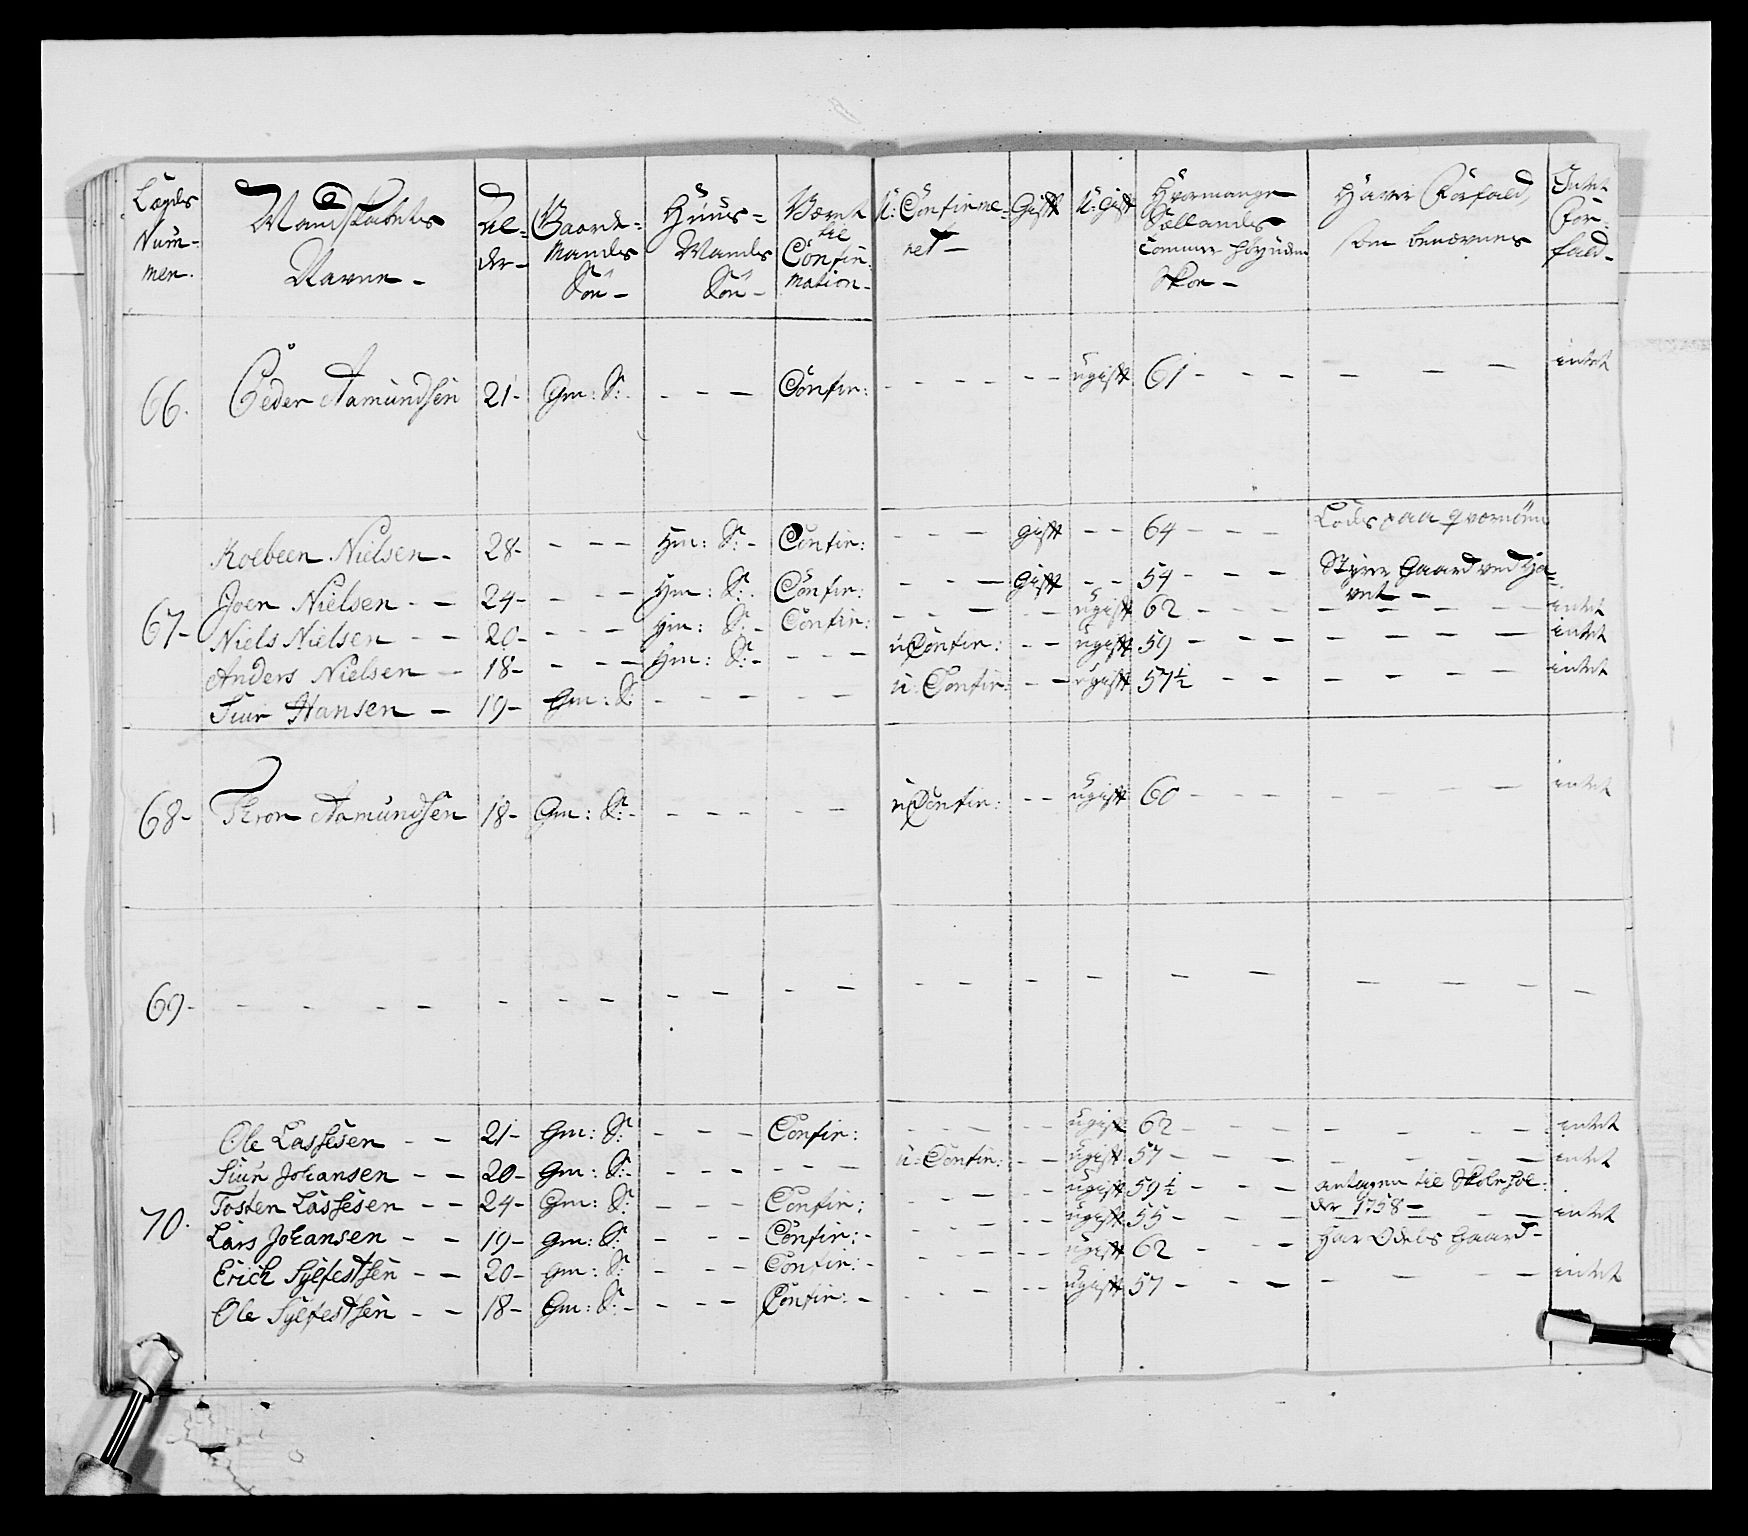 Lægds Num- mer. | Mandskabets Navne - | Al- der - | Gaard- Mandes Sön - | Huus- Mandes Sön - | Været til Confir- mation - | U: Confirme- ret - | Gift | U: gift | Hvormange Sællandske Tommer höy uden Skoe - | Haver Forfald, som benævnes | Intet For- fald -
66. | Peder Aamundsen | 21- | Gm: S: | - - - | Confir: | - - - - | - - | ugift | 61 - - - | - - - | intet
Koebeen Nielsen - | 28- | - - - | Hm: S: - | Confir: | - - - | gift | - - | 64 - - - | Lods paa
67- | Joen Nielsen - - | 24- | - - - | Hm: S: - | Confir: | - - - | gift | - - | 54 - - - | Styrer Gaard ved Ha- vet -
Niels Nielsen - - | 20- | - - - | Hm: S: - | Confir: | - - - | - - | ugift | 62 - - - | - - - - | intet
Anders Nielsen - | 18- | - - - | Hm: S: - | - - - | u Confir: | - - | ugift | 59 - - - | - - - - | intet
Siur Hansen - | 19- | Gm: S: | - - - | - - | u: Confir: | - - | ugift | 57½ - - | - - - - | intet
68- | Thron Aamundsen | 18- | Gm: S: - | - - - | - - | u Confir: | - - | ugift | 60 - - - | - - - - | intet
69- | - - - - | - | - - | - - | - - | - - | - | - | - - | - - - | -
Ole Lassesen - - | 21- | Gm: S: | - - - | Confir: | - - - | - - | ugift | 62 - - - | - - - - | intet
Siur Johansen - - | 20- | Gm: S: - | - - - | - - - | u: Confir: | - - | ugift | 57 - - - | - - - - | intet
70. | Tosten Lassesen - - | 24- | Gm: S: | - - - | Confir: | - - - | - - | ugift | 59½ - - - | antagen til Skolehol- der 1758 -
Lars Johansen - - | 19- | Gm: S: | - - - | Confir: - | - - - | - - | ugift | 55 - - - | - - | intet
Erich Sylfestsen - - | 20- | Gm: S: | - - - | Confir: - | - - - | - - | ugift | 62 - - - | Har Odels Gaard -
Ole Sylfestsen - - | 18- | Gm: S: - | - - - | Confir: - | - - - | - - | ugift | 57 - - - | - - - - | intet